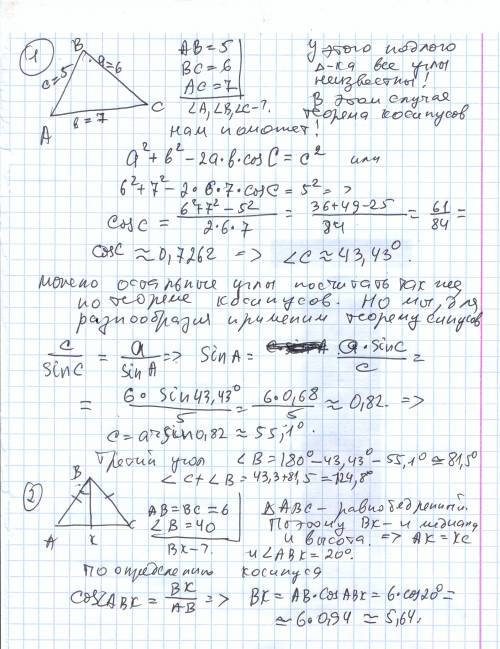 1
B
c=5
a=6
A
b=7
C
AB=5
BC=6
AC=7
∠A, ∠B, ∠C-?.
У этого подлого
Δ-ка все углы
неизвестны!
В этом случае
теорема косинусов
нам поможет!
a²+b²-2a·b·cosC=c² или
6²+7²-2·6·7·cosC=5² =>
cosC = (6²+7²-5²)/(2·6·7) = (36+49-25)/84 = 61/84 =
cosC ≈ 0,7262 => ∠C ≈ 43,43°.
Можно остальные углы посчитать так же
по теореме косинусов. Но мы, для
разнообразия применим теорему синусов
c/sinC = a/sinA => sinA = a·sinC/c =
= 6·sin43,43°/5 = 6·0,68/5 ≈ 0,82. =>
c=arcsin0,82≈55,1°.
Третий угол ∠B=180°-43,43°-55,1°≃81,5°
∠C+∠B=43,3+81,5=124,8°
2
B
A
K
C
AB=BC=6
∠B=40
BK-?.
ΔABC- равнобедренный.
Поэтому BK- и медиана
и высота. => AK=KC
и ∠ABK=20°.
По определению косинуса
cos∠ABK = BK/AB => BK=AB·cosABK=6·cos20°=
≃6·0,94≃5,64.